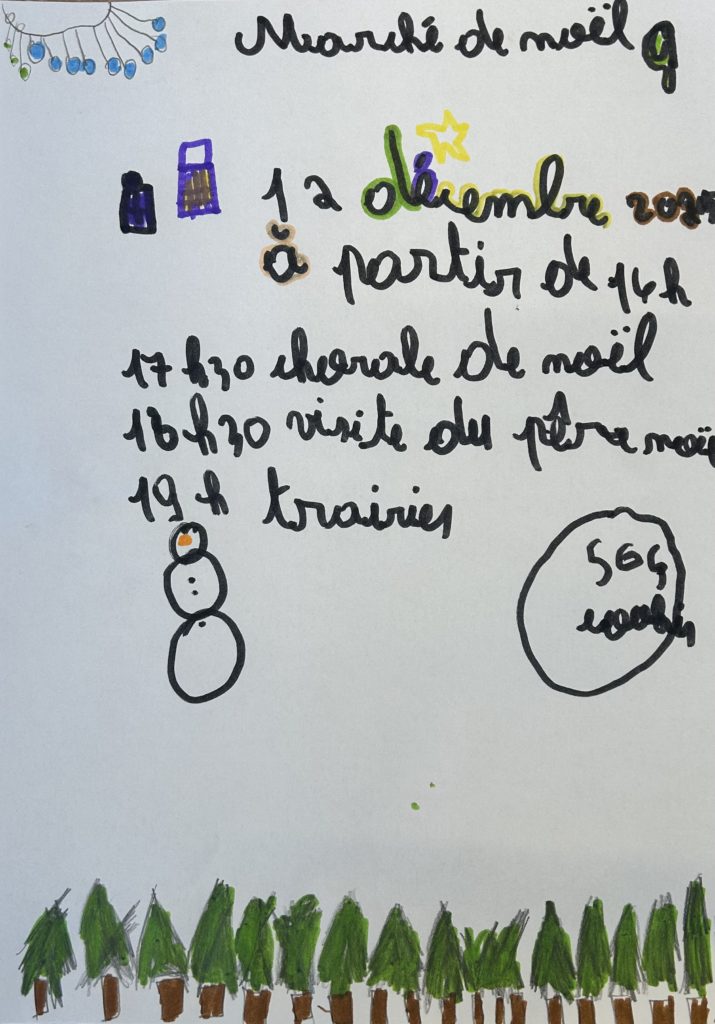 Marché de noël
12 décembre
à partir de 14h
17h30 chorale de noël
18h30 visite du père noël
19h